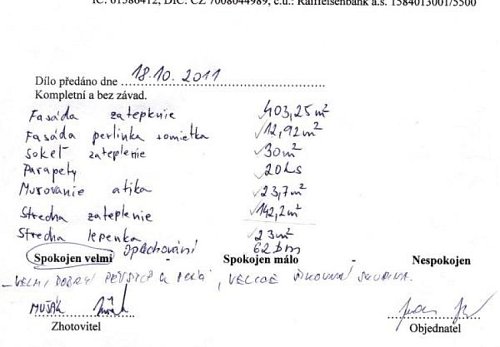 IČ: 61586412, DIČ: CZ 7008044989, č.ú.: Raiffeisenbank a.s. 1584013001/5500
Dílo předáno dne 18.10. 2011
Kompletní a bez závad.
Fasáda zateplenie 403,25m²
Fasáda perlinka + omietka 12,92m²
sokel zateplenie 30m²
Parapety 20ks
Murovanie atika 23,7m²
Strecha zateplenie 142,2m²
Strecha lepenka 23m²
oplechování 62bm
Spokojen velmi - Spokojen málo - Nespokojen
VELMI DOBRÝ , VELICE ŠIKOVNÁ SKUPINA.
MUŠÁK
Zhotovitel Objednatel